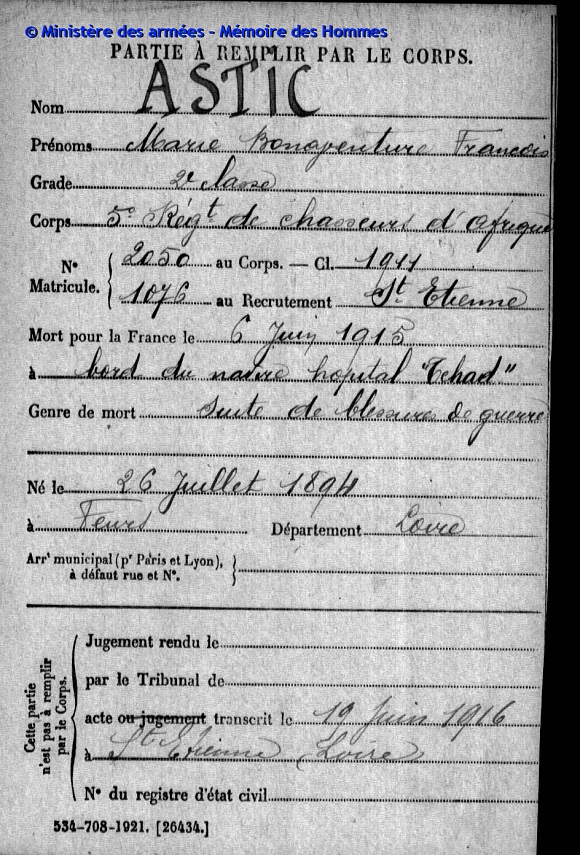 © Ministère des armées - Mémoire des Hommes
PARTIE À REMPLIR PAR LE CORPS.
Nom ASTIC
Prénoms Marie Bonaventure François
Grade 2e classe
Corps 5e Régt de chasseurs d'Afrique
N° Matricule. 2050 au Corps. — Cl. 1911
1076 au Recrutement St Etienne
Mort pour la France le 6 Juin 1915
à bord du navire hopital "Tchad"
Genre de mort suite de blessures de guerre
Né le 26 Juillet 1894
à Feurs Département Loire
Arrt municipal (pr Paris et Lyon),
à défaut rue et N°.
Cette partie n'est pas à remplir par le Corps.
Jugement rendu le
par le Tribunal de
acte ou jugement transcrit le 19 Juin 1916
à St Etienne (Loire)
N° du registre d'état civil
534-708-1921. [26434.]